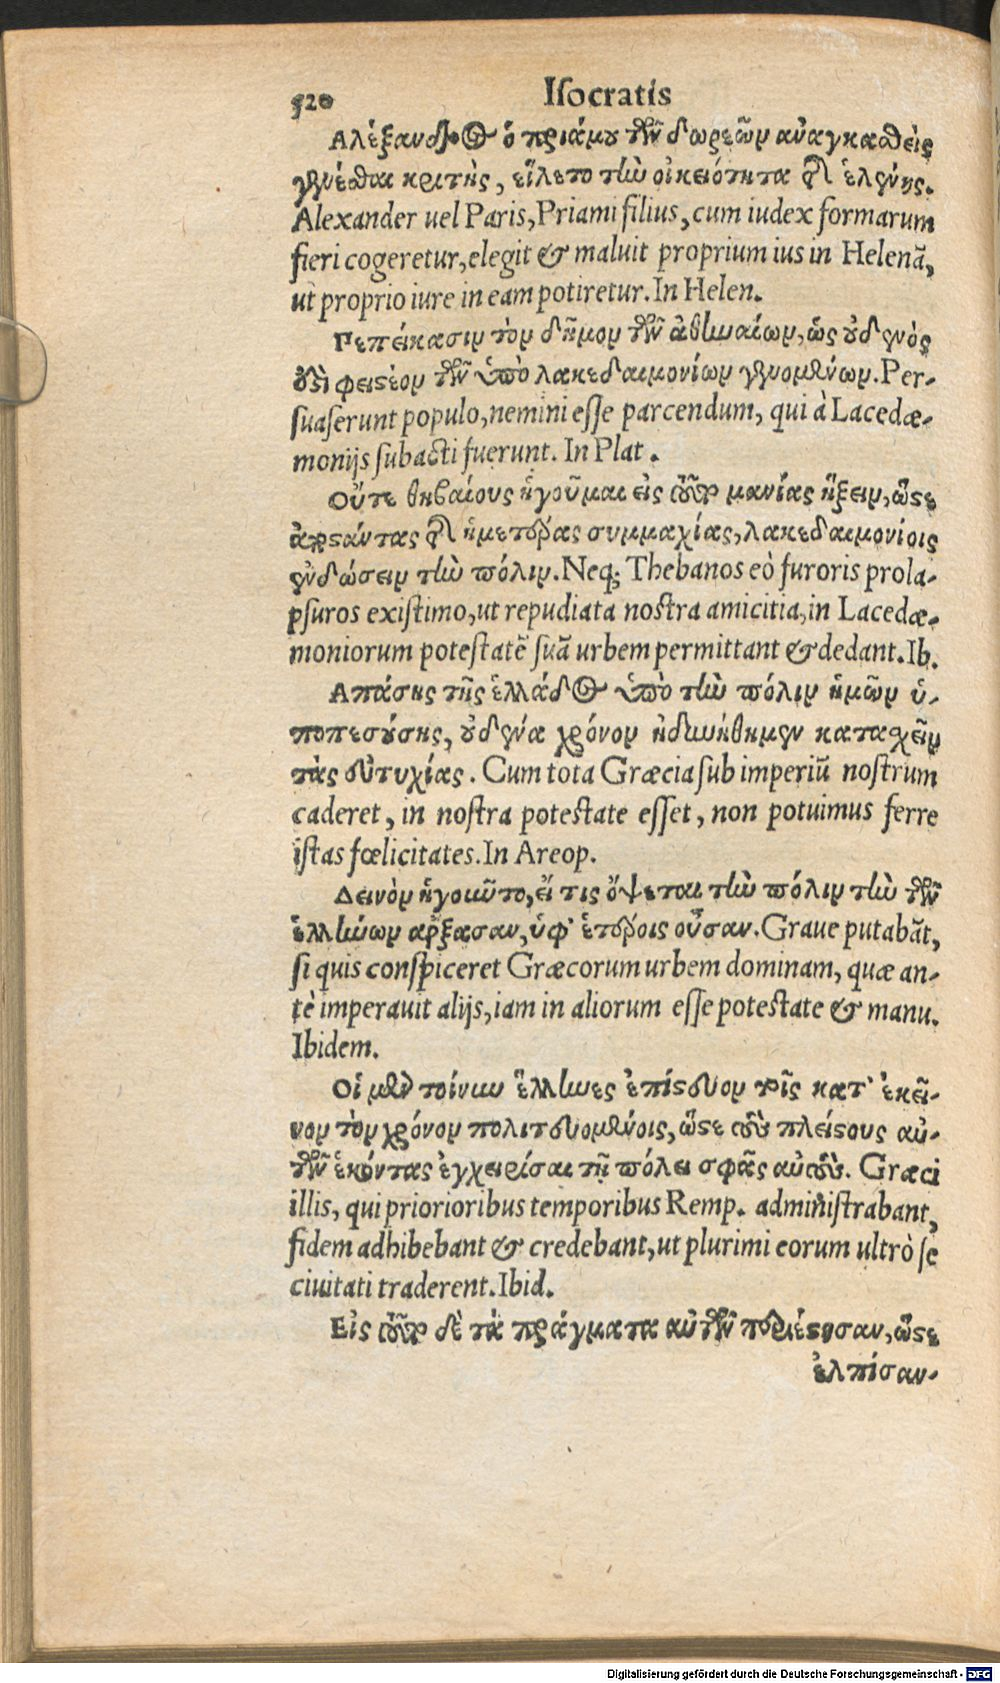 520 Iſocratis
Αλέξανδρος ὁ πριάμου τῶν δωρεῶν ἀναγκασθεὶς
γενέσθαι κριτὴς, εἵλετο τὴν οἰκειότητα τῆς ἑλένης.
Alexander uel Paris, Priami filius, cum iudex formarum
fieri cogeretur, elegit & maluit proprium ius in Helenā,
ut proprio iure in eam potiretur. In Helen.
Πεπείκασιν τὸν δῆμον τῶν ἀθηναίων, ὡς οὐδενὸς
οὐδὲ φειστέον τῶν ὑπὸ λακεδαιμονίων γενομένων. Per-
ſuaſerunt populo, nemini eſſe parcendum, qui à Lacedæ-
monijs ſubacti fuerunt. In Plat.
Οὔτε θηβαίους ἡγοῦμαι εἰς τοῦτο μανίας ἥξειν, ὥστε
ἀποστάντας τῆς ἡμετέρας συμμαχίας, λακεδαιμονίοις
ἐνδώσειν τὴν πόλιν. Neq; Thebanos eò furoris prola-
pſuros exiſtimo, ut repudiata noſtra amicitia, in Lacedæ-
moniorum poteſtatē ſuā urbem permittant & dedant. Ib.
Απάσης τῆς ἑλλάδος ὑπὸ τὴν πόλιν ἡμῶν ὑ-
ποπεσούσης, οὐδένα χρόνον ἠδυνήθημεν κατασχεῖν
τὰς εὐτυχίας. Cum tota Græcia ſub imperiū noſtrum
caderet, in noſtra poteſtate eſſet, non potuimus ferre
iſtas fœlicitates. In Areop.
Δεινὸν ἡγοιῦντο, εἴ τις ὄψεται τὴν πόλιν τὴν τῶν
ἑλλήνων ἄρξασαν, ὑφ' ἑτέροις οὖσαν. Graue putabāt,
ſi quis conſpiceret Græcorum urbem dominam, quæ an-
tè imperauit alijs, iam in aliorum eſſe poteſtate & manu.
Ibidem.
Οἱ μὲν τοίνυν ἕλληνες ἐπίστευον τοῖς κατ' ἐκεῖ-
νον τὸν χρόνον πολιτευομένοις, ὥστε τοὺς πλείστους αὐ-
τῶν ἑκόντας ἐγχειρίσαι τῇ πόλει σφᾶς αὐτούς. Græci
illis, qui priorioribus temporibus Remp. adminiſtrabant,
fidem adhibebant & credebant, ut plurimi eorum ultrò ſe
ciuitati traderent. Ibid.
Εἰς τοῦτο δὲ τὰ πράγματα αὐτῶν περιέστησαν, ὥστε
ἐλπίσαν-
Digitalisierung gefördert durch die Deutsche Forschungsgemeinschaft - DFG